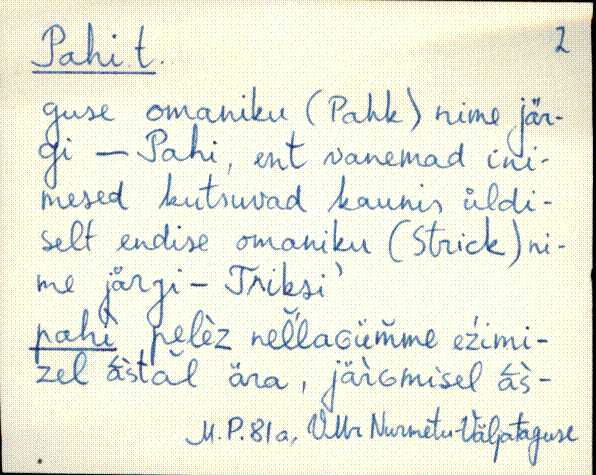 Pahi t. 2
guse omaniku (Pahk) nime jär-
gi – Pahi, ent vanemad ini-
mesed kutsuvad kaunis üldi-
selt endise omaniku (Strick) ni-
me järgi – Triksi'
pahì pelèz nel̆laɢüm̆me eźimi-
zel ás̀tăl ära, järɢmisel ás̀-
M.P. 81a, VMr Nurmetu-Väljataguse